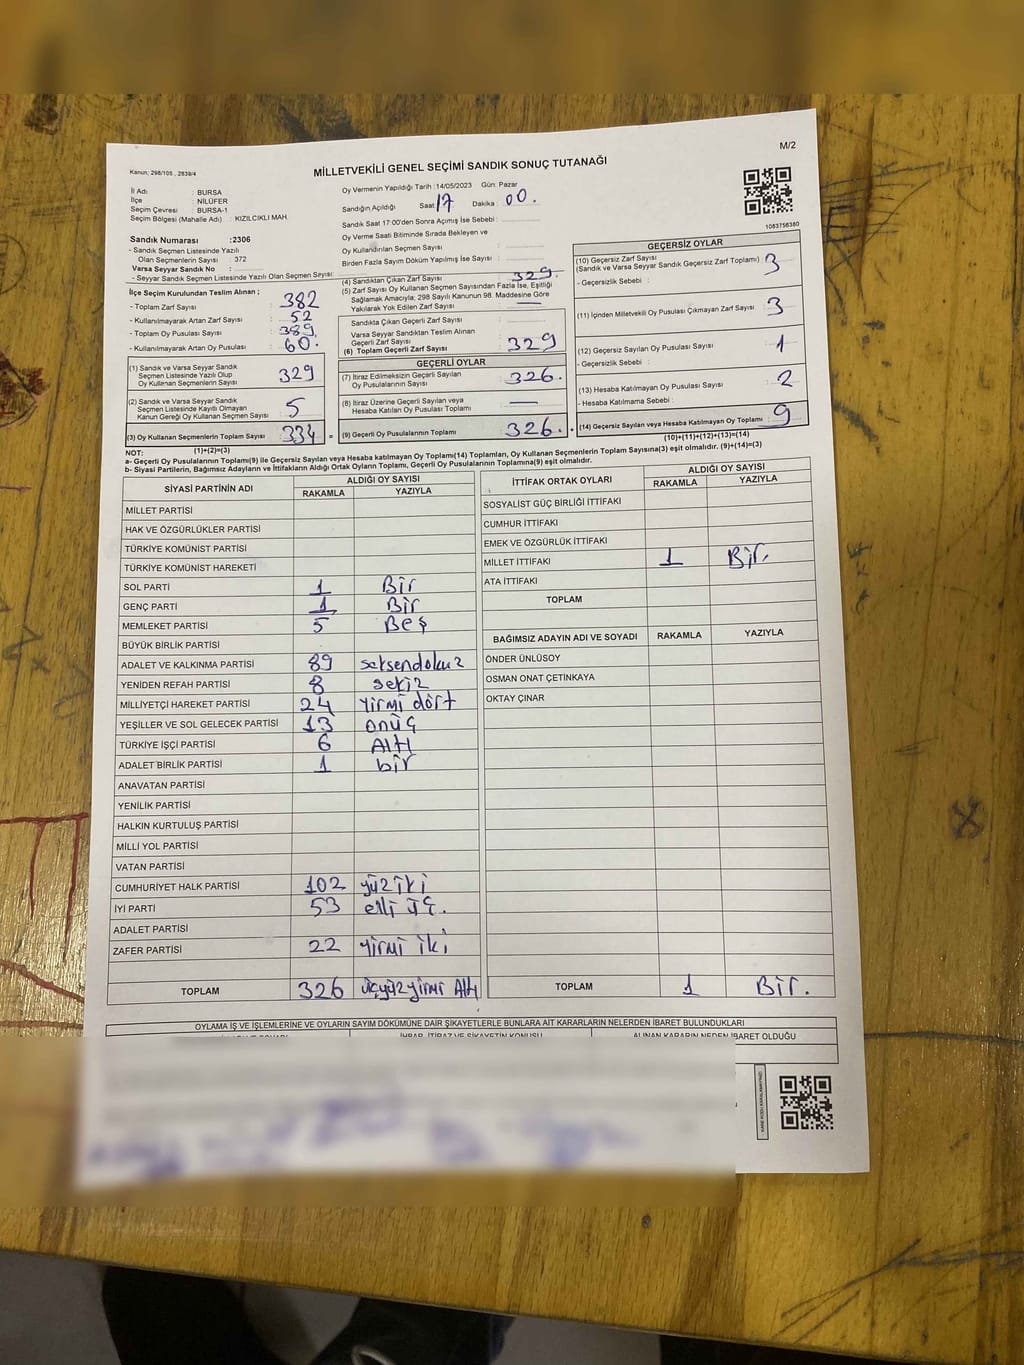 M/2
Kanun; 298/105., 2839/4
MİLLETVEKİLİ GENEL SEÇİMİ SANDIK SONUÇ TUTANAĞI
İl Adı : BURSA
İlçe : NİLÜFER
Seçim Çevresi : BURSA-1
Seçim Bölgesi (Mahalle Adı) : KIZILCIKLI MAH.
Sandık Numarası :2306
- Sandık Seçmen Listesinde Yazılı
Olan Seçmenlerin Sayısı : 372
Varsa Seyyar Sandık No :
- Seyyar Sandık Seçmen Listesinde Yazılı Olan Seçmen Sayısı:
İlçe Seçim Kurulundan Teslim Alınan ;
- Toplam Zarf Sayısı : 382
- Kullanılmayarak Artan Zarf Sayısı : 52
- Toplam Oy Pusulası Sayısı : 389
- Kullanılmayarak Artan Oy Pusulası : 60.
(1) Sandık ve Varsa Seyyar Sandık
Seçmen Listesinde Yazılı Olup
Oy Kullanan Seçmenlerin Sayısı : 329
(2) Sandık ve Varsa Seyyar Sandık
Seçmen Listesinde Kayıtlı Olmayan
Kanun Gereği Oy Kullanan Seçmen Sayısı : 5
(3) Oy Kullanan Seçmenlerin Toplam Sayısı : 334 =
(1)+(2)=(3)
Oy Vermenin Yapıldığı Tarih :14/05/2023 Gün: Pazar
Sandığın Açıldığı Saat: 17 Dakika : 00.
Sandık Saat 17:00'den Sonra Açımış İse Sebebi :
Oy Verme Saati Bitiminde Sırada Bekleyen ve
Oy Kullandırılan Seçmen Sayısı :
Birden Fazla Sayım Döküm Yapılmış İse Sayısı :
(4) Sandıktan Çıkan Zarf Sayısı : 329.
(5) Zarf Sayısı Oy Kullanan Seçmen Sayısından Fazla İse, Eşitliği
Sağlamak Amacıyla; 298 Sayılı Kanunun 98. Maddesine Göre
Yakılarak Yok Edilen Zarf Sayısı : —
Sandıkta Çıkan Geçerli Zarf Sayısı :
Varsa Seyyar Sandıktan Teslim Alınan
Geçerli Zarf Sayısı :
(6) Toplam Geçerli Zarf Sayısı : 329
GEÇERLİ OYLAR
(7) İtiraz Edilmeksizin Geçerli Sayılan
Oy Pusulalarının Sayısı : 326.
(8) İtiraz Üzerine Geçerli Sayılan veya
Hesaba Katılan Oy Pusulası Toplamı : —
(9) Geçerli Oy Pusulalarının Toplamı : 326. +
1083756380
GEÇERSİZ OYLAR
(10) Geçersiz Zarf Sayısı
(Sandık ve Varsa Seyyar Sandık Geçersiz Zarf Toplamı) : 3
- Geçersizlik Sebebi :
(11) İçinden Milletvekili Oy Pusulası Çıkmayan Zarf Sayısı : 3
(12) Geçersiz Sayılan Oy Pusulası Sayısı : 1
- Geçersizlik Sebebi :
(13) Hesaba Katılmayan Oy Pusulası Sayısı : 2
- Hesaba Katılmama Sebebi :
(14) Geçersiz Sayılan veya Hesaba Katılmayan Oy Toplamı : 9
(10)+(11)+(12)+(13)=(14)
NOT:
a- Geçerli Oy Pusulalarının Toplamı(9) ile Geçersiz Sayılan veya Hesaba katılmayan Oy Toplamı(14) Toplamları, Oy Kullanan Seçmenlerin Toplam Sayısına(3) eşit olmalıdır. (9)+(14)=(3)
b- Siyasi Partilerin, Bağımsız Adayların ve İttifakların Aldığı Ortak Oyların Toplamı, Geçerli Oy Pusulalarının Toplamına(9) eşit olmalıdır.
SİYASİ PARTİNİN ADI ALDIĞI OY SAYISI
RAKAMLA YAZIYLA
MİLLET PARTİSİ
HAK VE ÖZGÜRLÜKLER PARTİSİ
TÜRKİYE KOMÜNİST PARTİSİ
TÜRKİYE KOMÜNİST HAREKETİ
SOL PARTİ 1 Bir
GENÇ PARTİ 1 Bir
MEMLEKET PARTİSİ 5 Beş
BÜYÜK BİRLİK PARTİSİ
ADALET VE KALKINMA PARTİSİ 89 seksendokuz
YENİDEN REFAH PARTİSİ 8 sekiz
MİLLİYETÇİ HAREKET PARTİSİ 24 yirmi dört
YEŞİLLER VE SOL GELECEK PARTİSİ 13 onüç
TÜRKİYE İŞÇİ PARTİSİ 6 Altı
ADALET BİRLİK PARTİSİ 1 bir
ANAVATAN PARTİSİ
YENİLİK PARTİSİ
HALKIN KURTULUŞ PARTİSİ
MİLLİ YOL PARTİSİ
VATAN PARTİSİ
CUMHURİYET HALK PARTİSİ 102 yüz iki
İYİ PARTİ 53 elli üç.
ADALET PARTİSİ
ZAFER PARTİSİ 22 yirmi iki
TOPLAM 326 üçyüz yirmi Altı
İTTİFAK ORTAK OYLARI ALDIĞI OY SAYISI
RAKAMLA YAZIYLA
SOSYALİST GÜÇ BİRLİĞİ İTTİFAKI
CUMHUR İTTİFAKI
EMEK VE ÖZGÜRLÜK İTTİFAKI
MİLLET İTTİFAKI 1 Bir.
ATA İTTİFAKI
TOPLAM
BAĞIMSIZ ADAYIN ADI VE SOYADI RAKAMLA YAZIYLA
ÖNDER ÜNLÜSOY
OSMAN ONAT ÇETİNKAYA
OKTAY ÇINAR
TOPLAM 1 Bir.
OYLAMA İŞ VE İŞLEMLERİNE VE OYLARIN SAYIM DÖKÜMÜNE DAİR ŞİKAYETLERLE BUNLARA AİT KARARLARIN NELERDEN İBARET BULUNDUKLARI
İHBAR, İTİRAZ VE ŞİKAYETİN KONUSU ALINAN KARARIN NEDEN İBARET OLDUĞU
KARE KODU KARALAMAYINIZ!